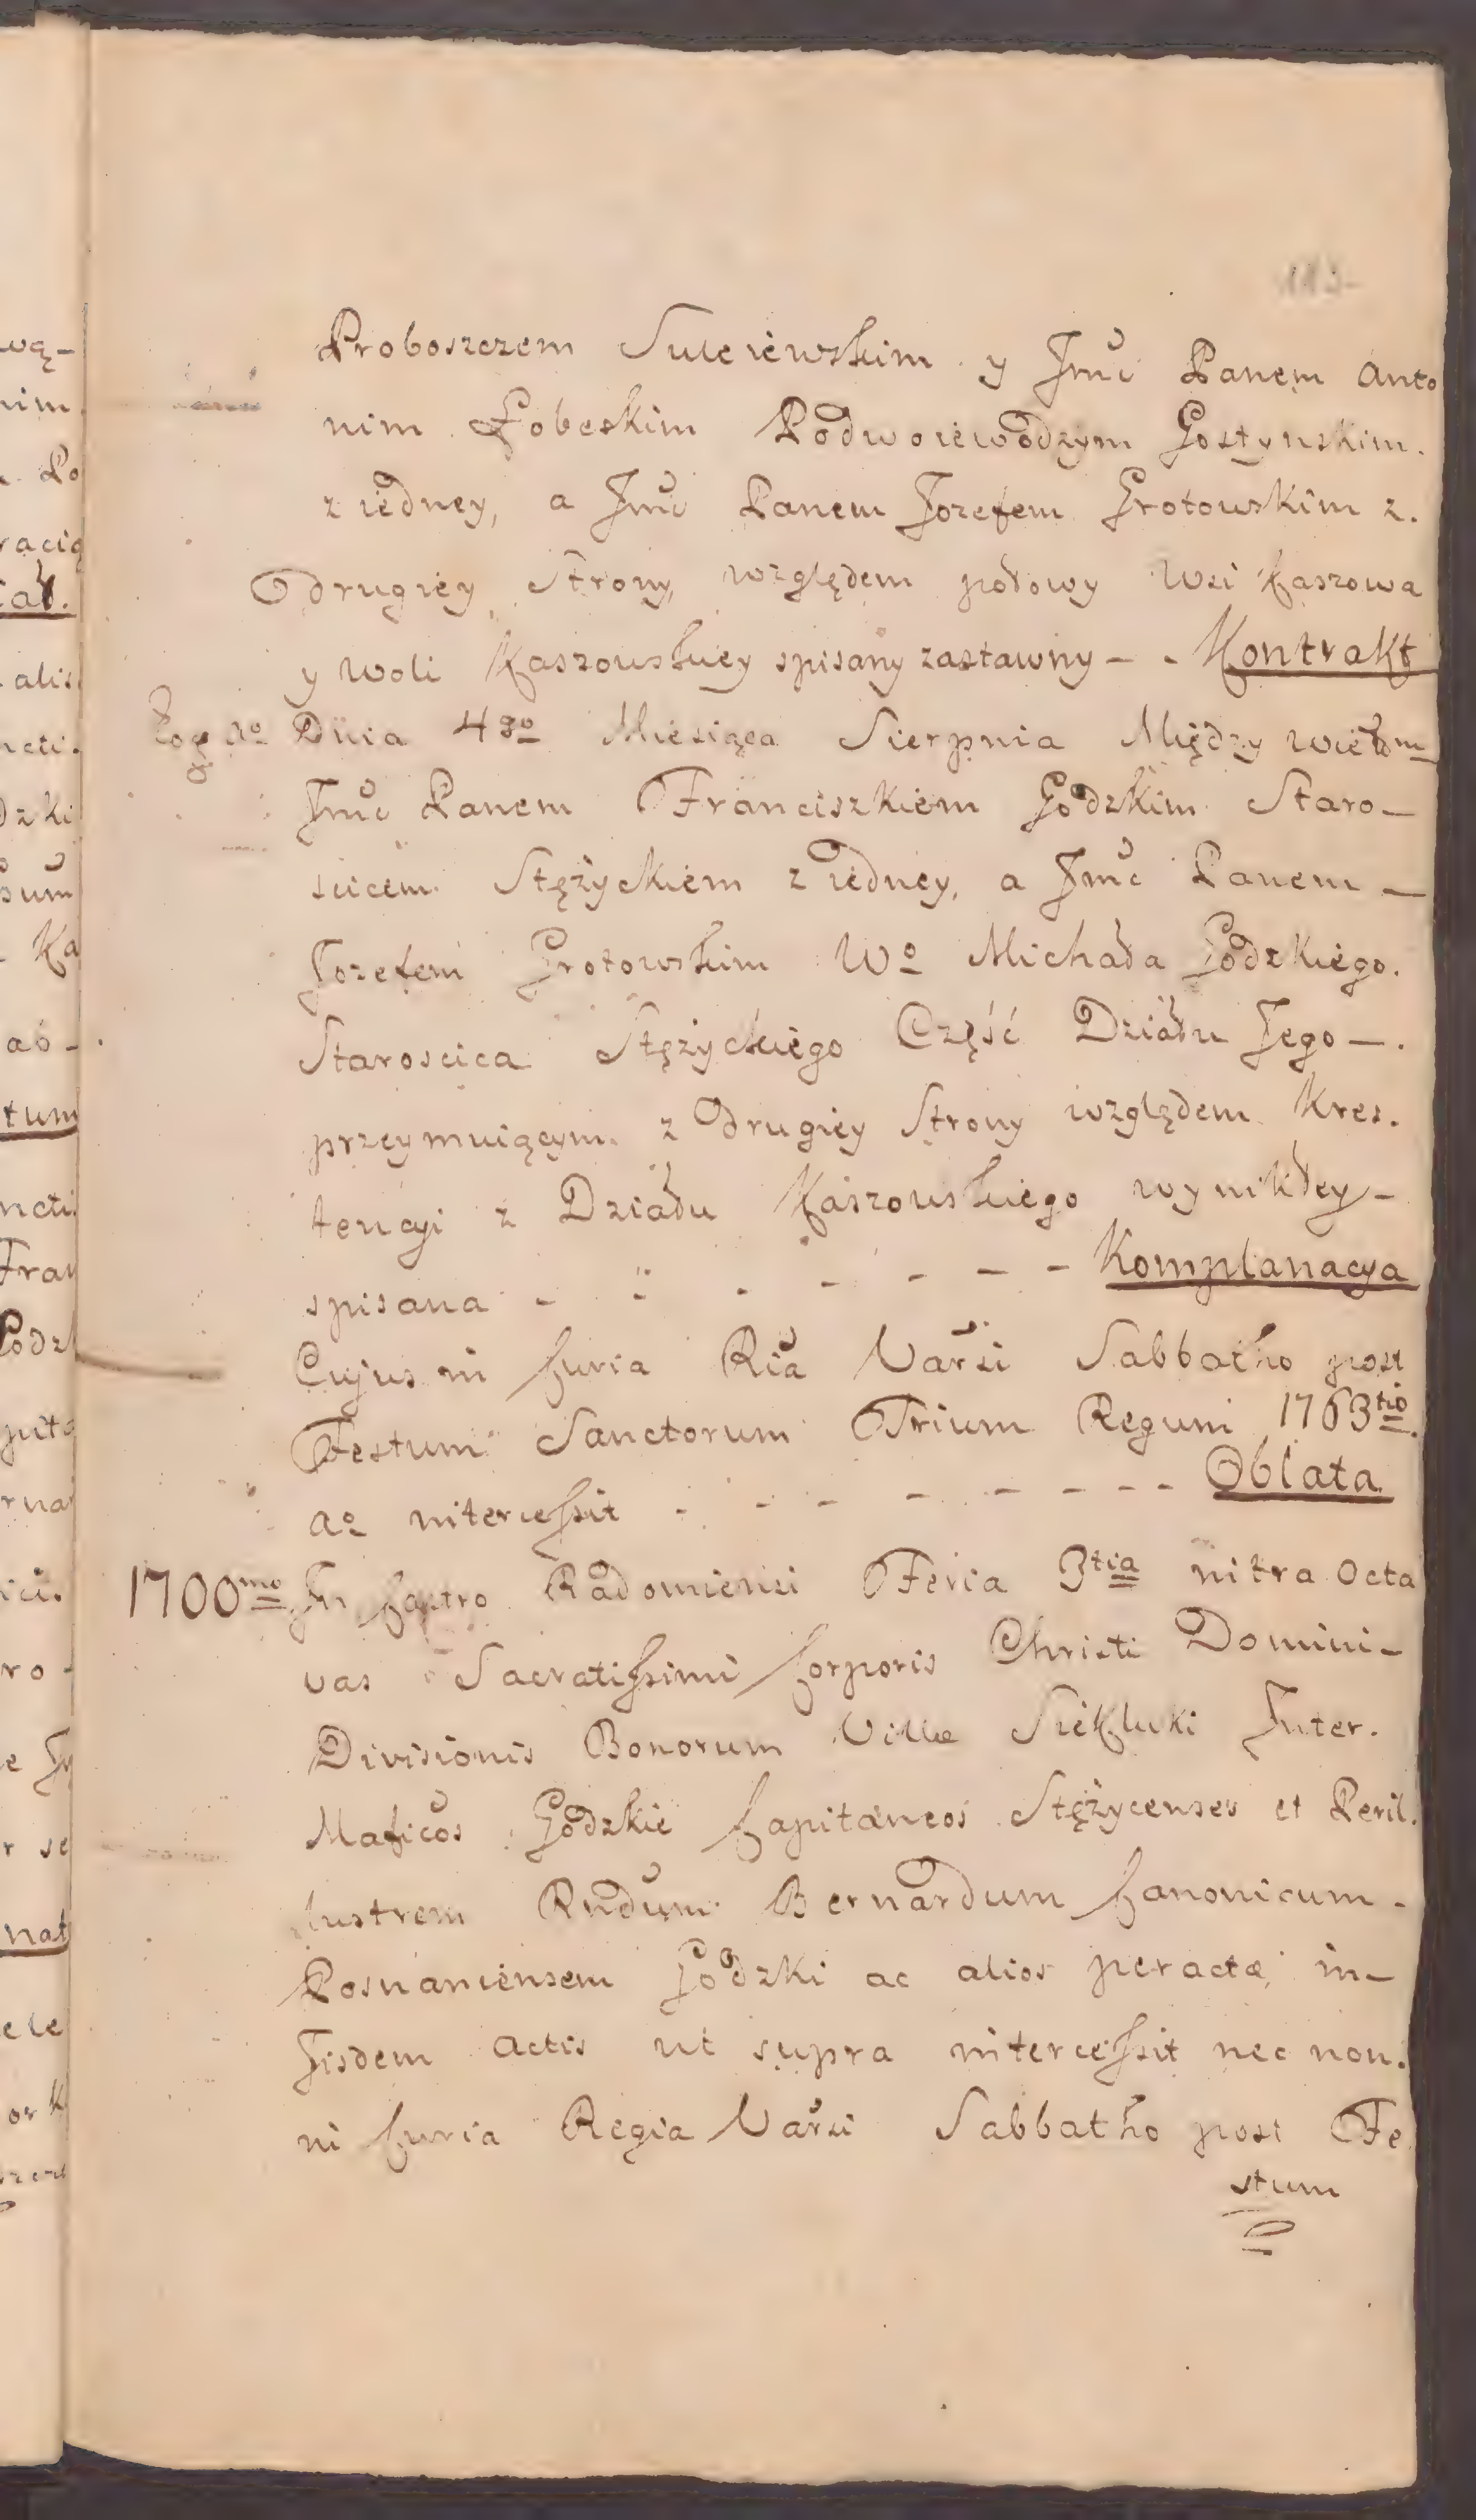 113
Proboszczem Suleiewskim y Jmć Panem Anto
nim Łobeskim Podwoiewodzym Gostynskim.
z iedney, a Jmć Panem Jozefem Grotowskim z.
drugiey Strony, względem połowy Wsi Kaszowa
y Woli Kaszowskiey spisany zastawny - - Kontrakt
Eog Ao Dnia 4go Miesiąca Sierpnia Między wielm
Jmć Panem Franciszkiem Godzkim Staro-
scicem Stężyckiem z iedney, a Jmć Panem -
Jozefem Grotowskim Wo Michała Godzkiego.
Staroscica Stężyckiego Część Działu Jego -.
przeymuiącym z drugiey Strony względem Kres.
tencyi z Działu Kaszowskiego wynikłey -
spisana - - - - - - - Komplanacya
Cujus in Curia Ria Varsi Sabbatho post
Festum Sanctorum Trium Regum 1763tio
ao intercessit - - - - - - - Oblata
1700mo In Castro Radomiensi Feria 3tia intra Octa
vas Sacratissimi Corporis Christi Domini -
Divisionis Bonorum Villæ Siekluki Inter.
Maficos Godzkie Capitaneos Stężycenses et Peril.
lustrem Rndum Bernardum Canonicum -
Posnaniensem Godzki ac alios peractæ in-
Jisdem Actis ut supra intercessit nec non.
in Curia Regia Varsi Sabbatho post Fe
stum